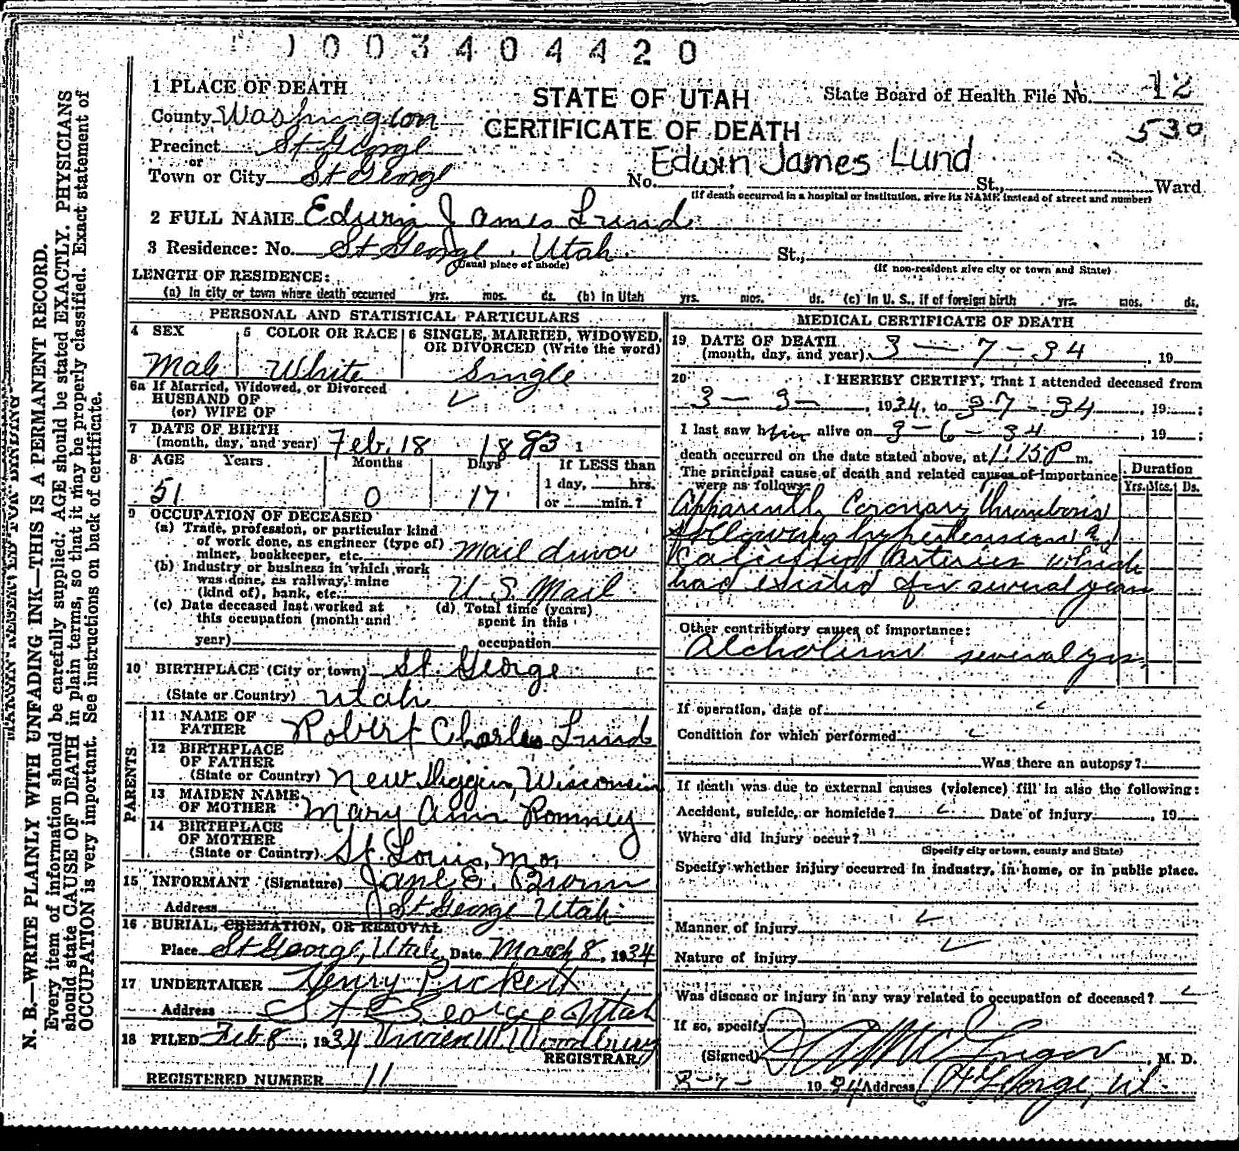 1003404420
1 PLACE OF DEATH
STATE OF UTAH
CERTIFICATE OF DEATH
State Board of Health File No. 12
530
County Washington
Precinct St George
or
Town or City St George No. St., Ward
Edwin James Lund
(If death occurred in a hospital or institution, give its NAME instead of street and number)
2 FULL NAME Edwin James Lund
3 Residence: No. St George, Utah St.,
(Usual place of abode) (If non-resident give city or town and State)
LENGTH OF RESIDENCE:
(a) In city or town where death occurred yrs. mos. ds. (b) In Utah yrs. mos. ds. (c) In U. S., if of foreign birth yrs. mos. ds.
PERSONAL AND STATISTICAL PARTICULARS
4 SEX
Male
5 COLOR OR RACE
White
6 SINGLE, MARRIED, WIDOWED, OR DIVORCED (Write the word)
Single
6a If Married, Widowed, or Divorced
HUSBAND OF
(or) WIFE OF
7 DATE OF BIRTH
(month, day, and year) Feb. 18 1883 1
8 AGE Years Months Days If LESS than
1 day, hrs.
51 0 17 or min.?
9 OCCUPATION OF DECEASED
(a) Trade, profession, or particular kind
of work done, as engineer (type of)
miner, bookkeeper, etc. mail driver
(b) Industry or business in which work
was done, as railway, mine
(kind of), bank, etc. U. S. Mail
(c) Date deceased last worked at
this occupation (month and
year)
(d) Total time (years)
spent in this
occupation
10 BIRTHPLACE (City or town) St. George
(State or Country) Utah
PARENTS
11 NAME OF
FATHER Robert Charles Lund
12 BIRTHPLACE
OF FATHER
(State or Country) New Diggins, Wisconsin
13 MAIDEN NAME
OF MOTHER Mary Ann Romney
14 BIRTHPLACE
OF MOTHER
(State or Country) St. Louis, Mo.
15 INFORMANT (Signature) Jane E. Brown
Address St George Utah
16 BURIAL, CREMATION, OR REMOVAL
Place St George, Utah Date March 8, 1934
17 UNDERTAKER Henry Pickett
Address St George Utah
18 FILED Feb 8, 1934 Vivien W. Woodbury
REGISTRAR
REGISTERED NUMBER 11
MEDICAL CERTIFICATE OF DEATH
19 DATE OF DEATH
(month, day, and year) 3-7-34, 19
20 I HEREBY CERTIFY, That I attended deceased from
3-3-, 1934, to 3-7-34, 19 ;
I last saw him alive on 3-6-34, 19 ;
death occurred on the date stated above, at 1:15 P m.
The principal cause of death and related causes of importance
were as follows:
Duration
Yrs. Mos. Ds.
Apparently Coronary thrombosis
following hypertension and
Calcified Arteries which
had existed for several years
Other contributory causes of importance:
Alcholism several yrs.
If operation, date of
Condition for which performed
Was there an autopsy?
If death was due to external causes (violence) fill in also the following:
Accident, suicide, or homicide? Date of injury, 19
Where did injury occur?
(Specify city or town, county and State)
Specify whether injury occurred in industry, in home, or in public place.
Manner of injury
Nature of injury
Was disease or injury in any way related to occupation of deceased?
If so, specify
(Signed) M. D.
3-7- 1934 Address St George, Ut.
MARGIN RESERVED FOR BINDING
N. B.—WRITE PLAINLY WITH UNFADING INK—THIS IS A PERMANENT RECORD.
Every item of information should be carefully supplied; AGE should be stated EXACTLY. PHYSICIANS
should state CAUSE OF DEATH in plain terms, so that it may be properly classified. Exact statement of
OCCUPATION is very important. See instructions on back of certificate.